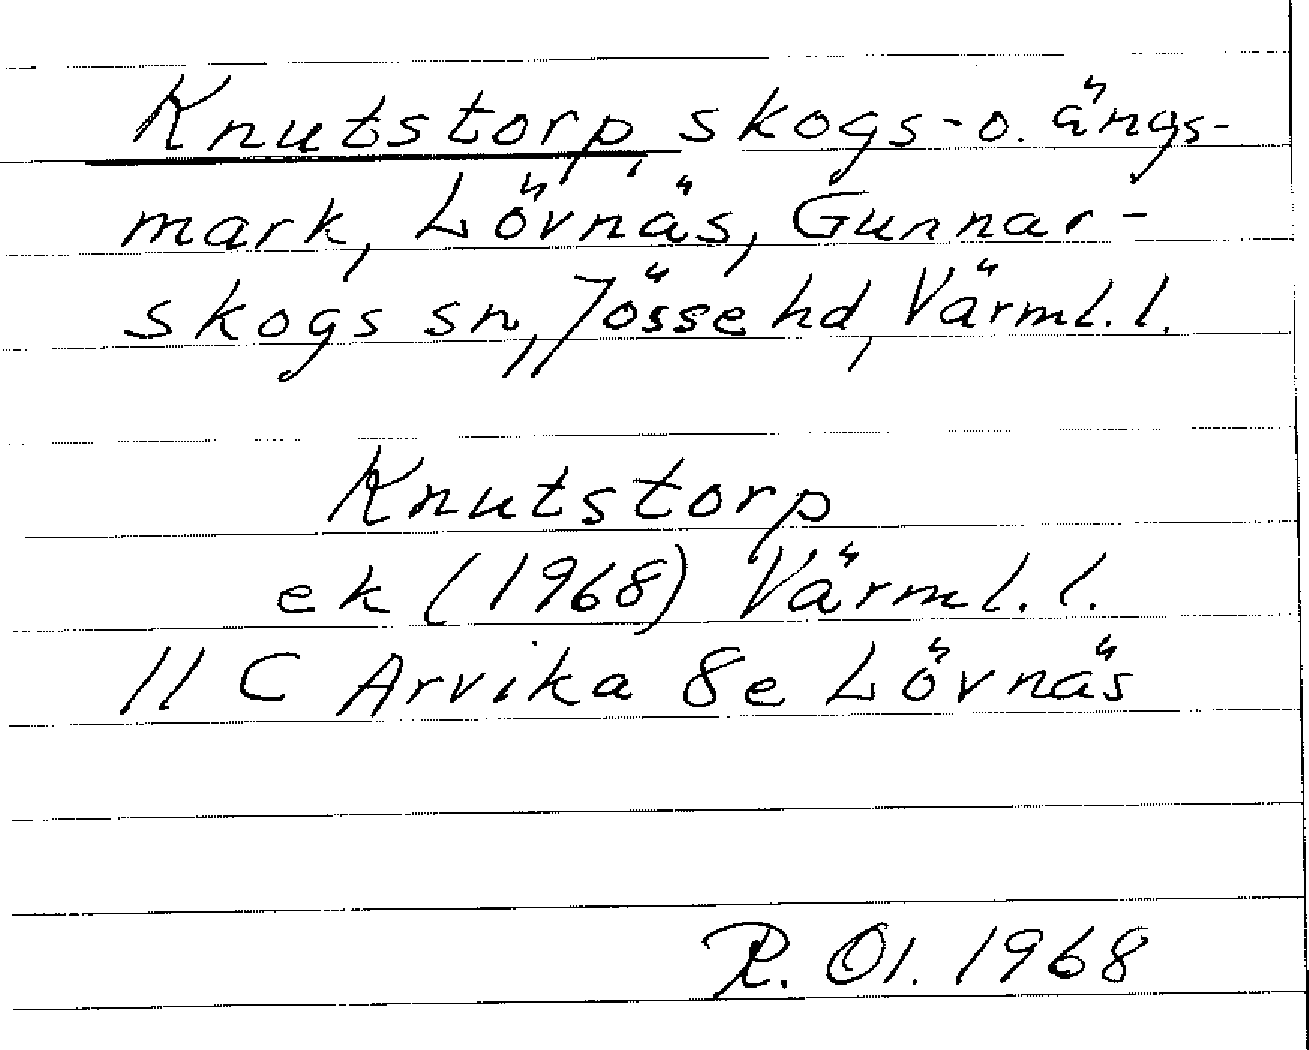 Knutstorp, skogs- o. ängs-
mark, Lövnäs, Gunnar-
skogs sn, Jösse hd, Värml. l.
Knutstorp
ek (1968) Värml. l.
11 C Arvika 8e Lövnäs
R. Ol. 1968